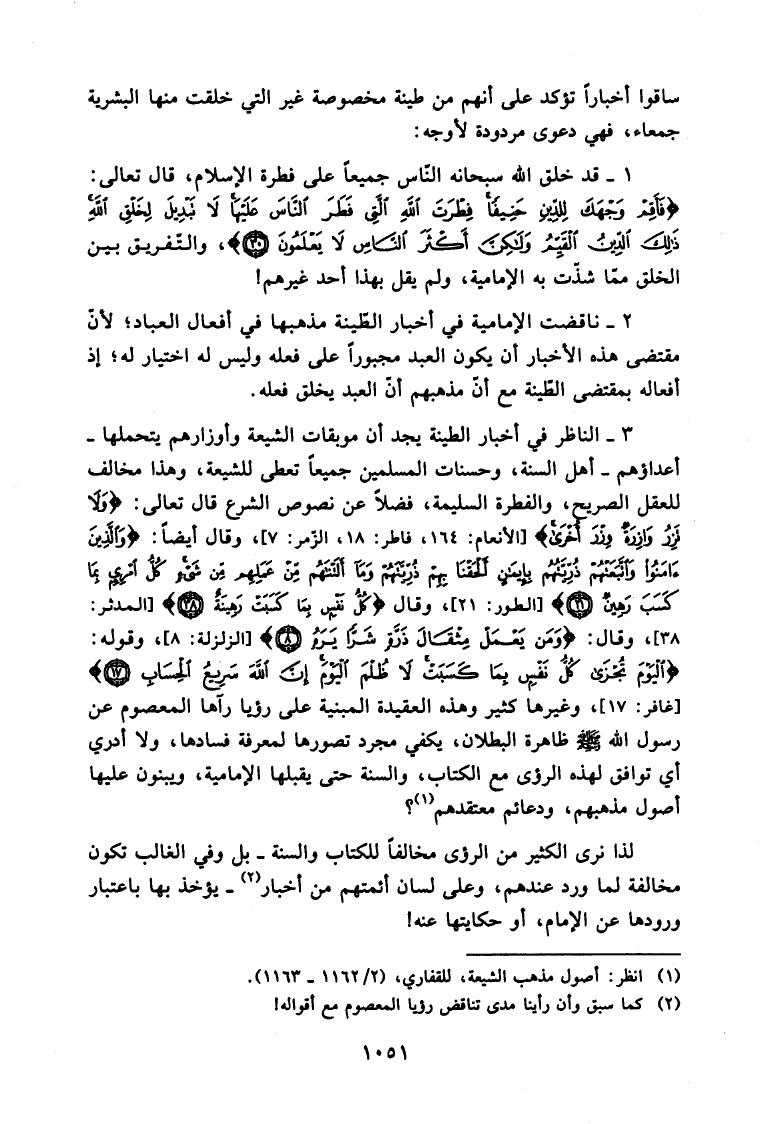 ساقوا أخباراً تؤكد على أنهم من طينة مخصوصة غير التي خلقت منها البشرية
جمعاء، فهي دعوى مردودة لأوجه:
١ ـ قد خلق الله سبحانه النّاس جميعاً على فطرة الإسلام، قال تعالى:
﴿فَأَقِمْ وَجْهَكَ لِلدِّينِ حَنِيفًا ۚ فِطْرَتَ اللَّهِ الَّتِي فَطَرَ النَّاسَ عَلَيْهَا ۚ لَا تَبْدِيلَ لِخَلْقِ اللَّهِ ۚ
ذَٰلِكَ الدِّينُ الْقَيِّمُ وَلَٰكِنَّ أَكْثَرَ النَّاسِ لَا يَعْلَمُونَ ٣٠﴾، والتّفريق بين
الخلق ممّا شذّت به الإمامية، ولم يقل بهذا أحد غيرهم!
٢ ـ ناقضت الإمامية في أخبار الطّينة مذهبها في أفعال العباد؛ لأنّ
مقتضى هذه الأخبار أن يكون العبد مجبوراً على فعله وليس له اختيار له؛ إذ
أفعاله بمقتضى الطّينة مع أنّ مذهبهم أنّ العبد يخلق فعله.
٣ ـ الناظر في أخبار الطينة يجد أن موبقات الشيعة وأوزارهم يتحملها ـ
أعداؤهم ـ أهل السنة، وحسنات المسلمين جميعاً تعطى للشيعة، وهذا مخالف
للعقل الصريح، والفطرة السليمة، فضلاً عن نصوص الشرع قال تعالى: ﴿وَلَا
تَزِرُ وَازِرَةٌ وِزْرَ أُخْرَىٰ﴾ [الأنعام: ١٦٤، فاطر: ١٨، الزّمر: ٧]، وقال أيضاً: ﴿وَالَّذِينَ
ءَامَنُوا وَاتَّبَعَتْهُمْ ذُرِّيَّتُهُم بِإِيمَٰنٍ أَلْحَقْنَا بِهِمْ ذُرِّيَّتَهُمْ وَمَا أَلَتْنَٰهُم مِّنْ عَمَلِهِم مِّن شَيْءٍ ۚ كُلُّ امْرِئٍ بِمَا
كَسَبَ رَهِينٌ ٢١﴾ [الطور: ٢١]، وقال ﴿كُلُّ نَفْسٍ بِمَا كَسَبَتْ رَهِينَةٌ ٣٨﴾ [المدثر:
٣٨]، وقال: ﴿وَمَن يَعْمَلْ مِثْقَالَ ذَرَّةٍ شَرًّا يَرَهُ ٨﴾ [الزلزلة: ٨]، وقوله:
﴿الْيَوْمَ تُجْزَىٰ كُلُّ نَفْسٍ بِمَا كَسَبَتْ ۚ لَا ظُلْمَ الْيَوْمَ ۚ إِنَّ اللَّهَ سَرِيعُ الْحِسَابِ ١٧﴾
[غافر: ١٧]، وغيرها كثير وهذه العقيدة المبنية على رؤيا رآها المعصوم عن
رسول الله ﷺ ظاهرة البطلان، يكفي مجرد تصورها لمعرفة فسادها، ولا أدري
أي توافق لهذه الرؤى مع الكتاب، والسنة حتى يقبلها الإمامية، ويبنون عليها
أصول مذهبهم، ودعائم معتقدهم(١)؟
لذا نرى الكثير من الرؤى مخالفاً للكتاب والسنة ـ بل وفي الغالب تكون
مخالفة لما ورد عندهم، وعلى لسان أئمتهم من أخبار(٢) ـ يؤخذ بها باعتبار
ورودها عن الإمام، أو حكايتها عنه!
(١) انظر: أصول مذهب الشيعة، للقفاري، (٢/ ١١٦٢ ـ ١١٦٣).
(٢) كما سبق وأن رأينا مدى تناقض رؤيا المعصوم مع أقواله!
١٠٥١